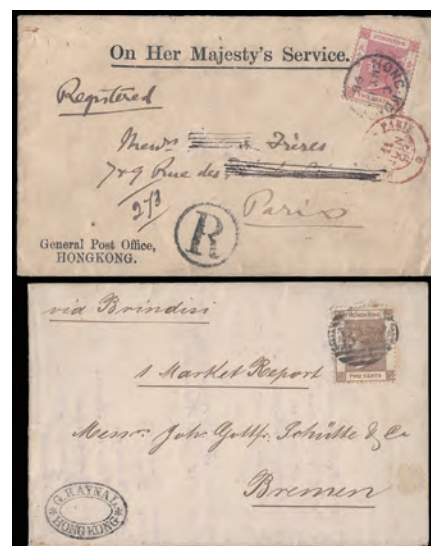 On Her Majesty's Service.
Registered
HONGKONG
Messrs Frères
7 & 9 Rue des
Paris
2/3
R
PARIS
General Post Office,
HONGKONG.
via Brindisi
HONGKONG
TWO CENTS
1 Market Report
Messrs. Joh. Gottfr. Schütte & Co
Bremen
G. RAYNAL
HONGKONG